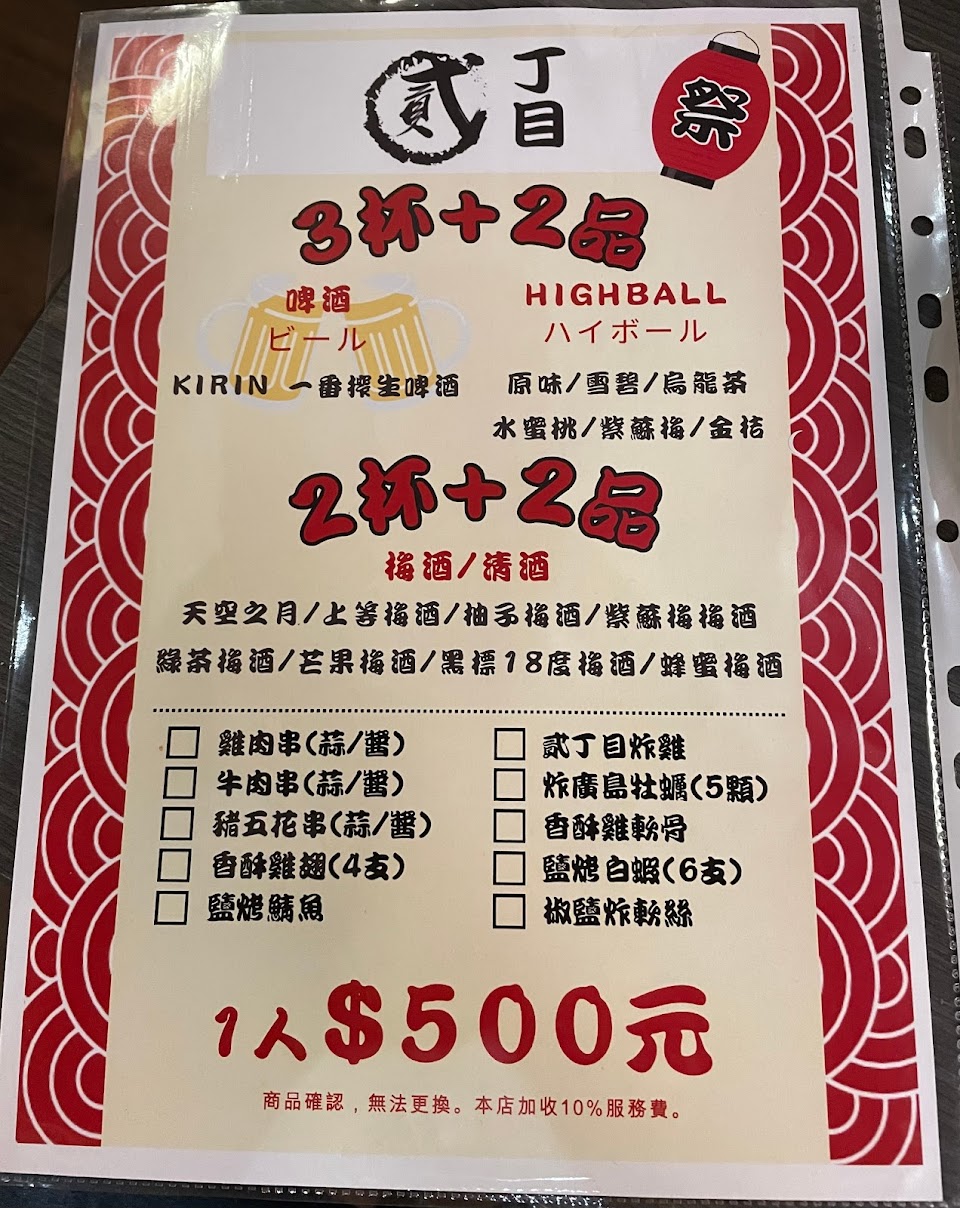 貳丁目
祭
3杯+2品
啤酒
ビール
KIRIN 一番搾生啤酒
HIGHBALL
ハイボール
原味/雪碧/烏龍茶
水蜜桃/紫蘇梅/金桔
2杯+2品
梅酒/清酒
天空之月/上等梅酒/柚子梅酒/紫蘇梅梅酒
綠茶梅酒/芒果梅酒/黑標18度梅酒/蜂蜜梅酒
雞肉串(蒜/醬)
牛肉串(蒜/醬)
豬五花串(蒜/醬)
香酥雞翅(4支)
鹽烤鯖魚
貳丁目炸雞
炸廣島牡蠣(5顆)
香酥雞軟骨
鹽烤白蝦(6支)
椒鹽炸軟絲
1人$500元
商品確認，無法更換。本店加收10%服務費。